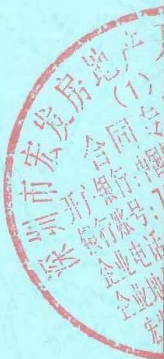 深圳市宏发房地产
(1)
合同专
开户银行:中国
银行账号:
企业电话
企业地